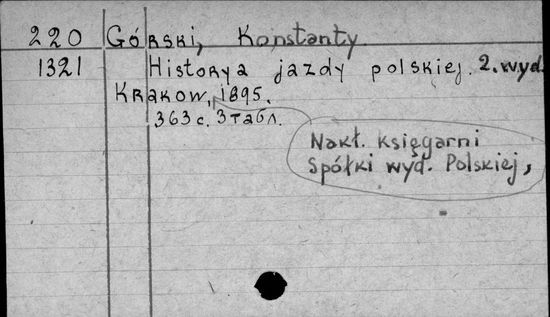 220 Górski, Konstanty
1321 Historya jazdy polskiej. 2. wyd.
Krakow, 1895.
363 с. 3 табл.
Nakł. księgarni
Spółki wyd. Polskiej,